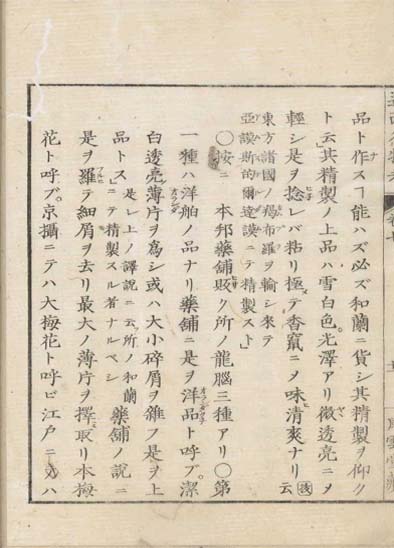 品ト作スヿ能ハズ必ズ和蘭ニ貨シ其精製ヲ仰ク
ト云」其精製ノ上品ハ雪白色。光澤アリ微透亮ニヲ
輕シ是ヲ捻レバ粘リ極テ香竄ニヲ味清爽ナリ云
東方諸國ノ羯布羅ヲ輸シ來テ
亞謨斯的爾達謨ニテ精製スト」
〇按ニ 本邦藥舗販ク所ノ龍腦三種アリ〇第
一種ハ洋舶ノ品ナリ藥舗ニ是ヲ洋品ト呼ブ。潔
白透亮薄片ヲ爲シ或ハ大小碎屑ヲ雜フ是ヲ上
品トス」是レ上ノ譯説ニ云所ノ和蘭
ニテ精製スル者ナルベシ 藥舗ノ説ニ
是ヲ羅テ細屑ヲ去リ最大ノ薄片ヲ擇取リ本梅
花ト呼ブ。京攝ニテハ大梅花ト呼ビ江戸ニハ